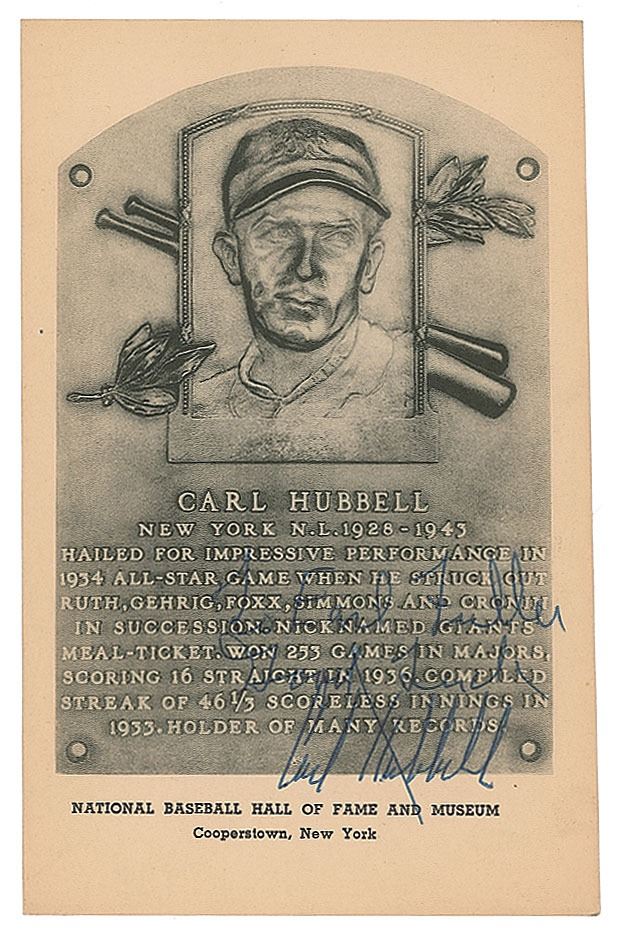 CARL HUBBELL
NEW YORK N.L. 1928-1943
HAILED FOR IMPRESSIVE PERFORMANCE IN
1934 ALL-STAR GAME WHEN HE STRUCK OUT
RUTH, GEHRIG, FOXX, SIMMONS AND CRONIN
IN SUCCESSION. NICKNAMED GIANTS'
MEAL-TICKET. WON 253 GAMES IN MAJORS,
SCORING 16 STRAIGHT IN 1936. COMPILED
STREAK OF 46 1/3 SCORELESS INNINGS IN
1933. HOLDER OF MANY RECORDS.
To Earl Fuller
Good Luck
Carl Hubbell
NATIONAL BASEBALL HALL OF FAME AND MUSEUM
Cooperstown, New York